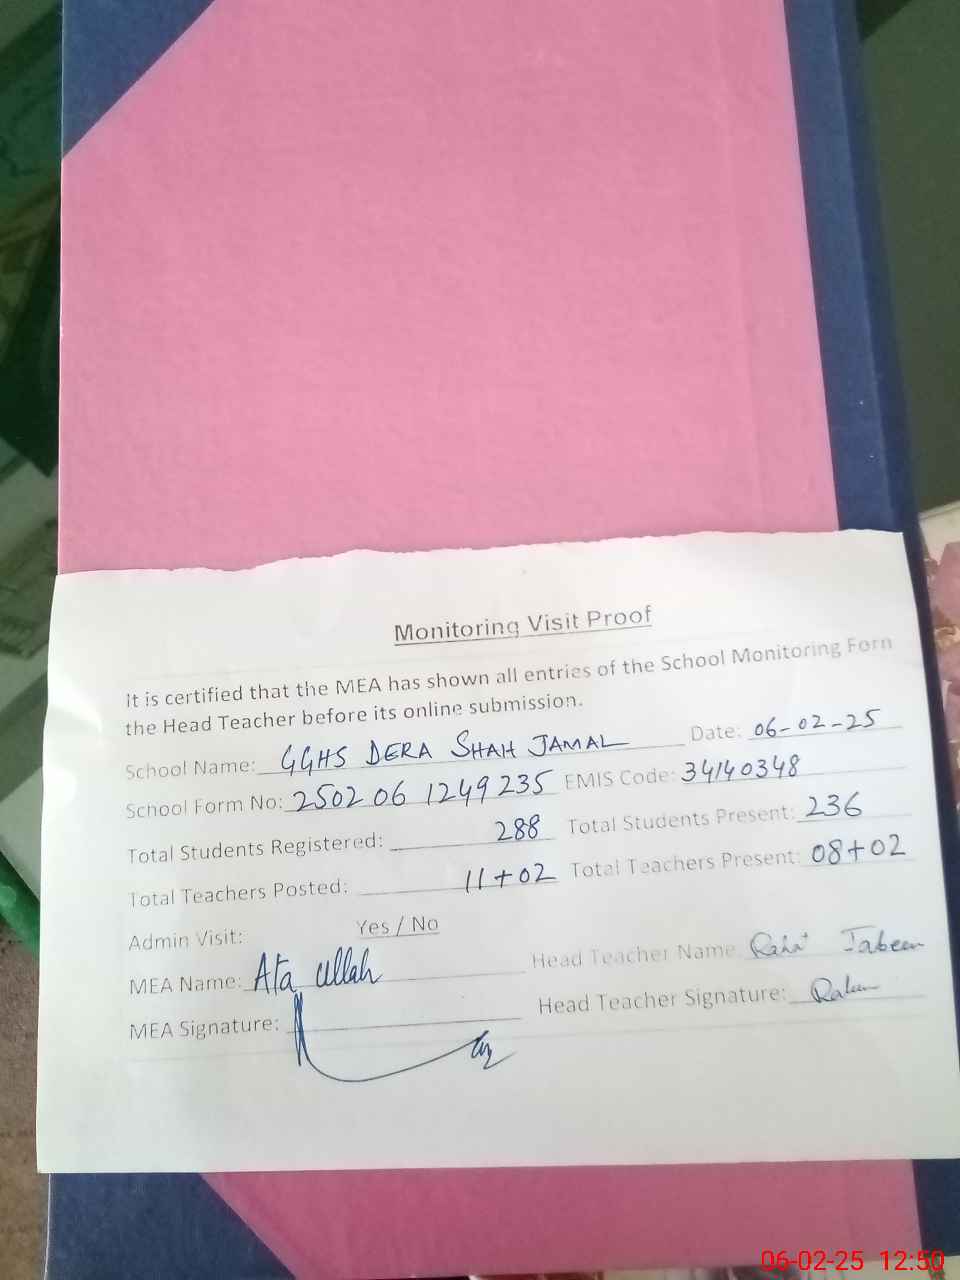 Monitoring Visit Proof
It is certified that the MEA has shown all entries of the School Monitoring Form
the Head Teacher before its online submission.
School Name: GGHS DERA SHAH JAMAL Date: 06-02-25
School Form No: 250206 1249235 EMIS Code: 34140348
Total Students Registered: 288 Total Students Present: 236
Total Teachers Posted: 11+02 Total Teachers Present: 08+02
Admin Visit: Yes / No
MEA Name: Ata ullah Head Teacher Name: Rahat Jabeen
MEA Signature: Head Teacher Signature:
06-02-25 12:50